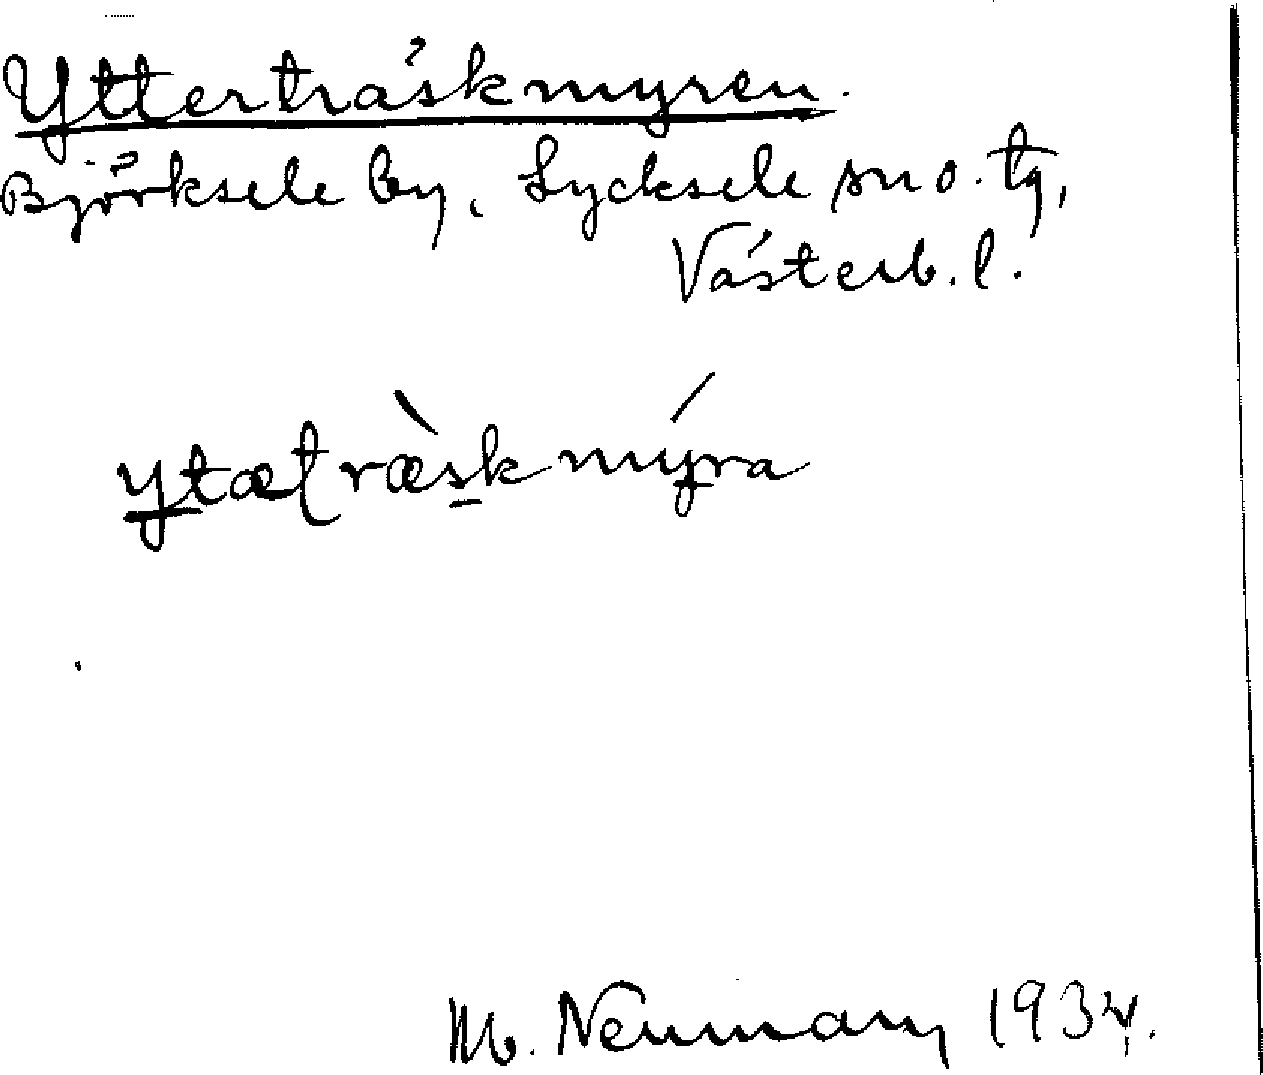 Ytterträskmyren.
Björksele by, Lycksele sn o. tg,
Västerb. l.
ytætræ̀skmýra
M. Neuman 1934.